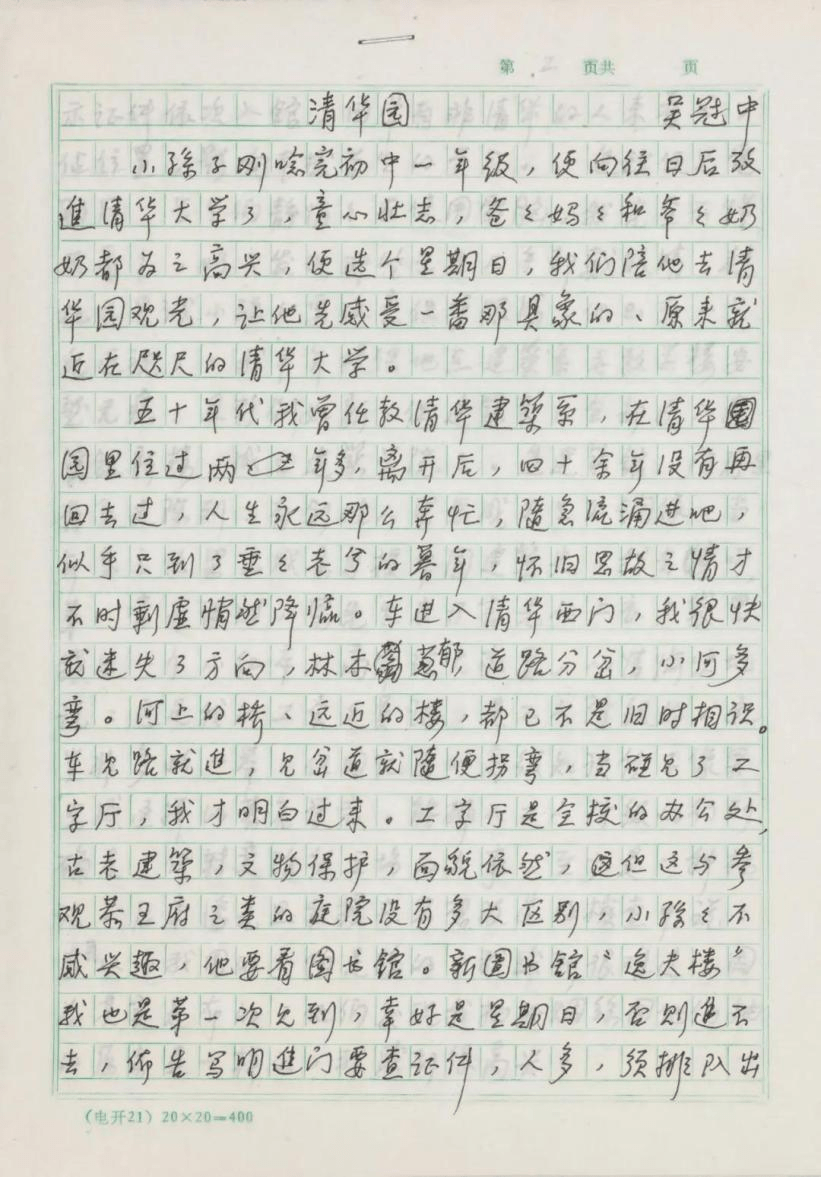 第 页共 页
清华园 吴冠中
小孫子刚唸完初中一年级，便向往日后攷
進清华大学了，童心壮志，爸々妈々和爷々奶
奶都为之高兴，便选个星期日，我们陪他去清
华园观光，让他先感受一番那具象的、原来就
近在咫尺的清华大学。
五十年代我曾任教清华建築系，在清华
园里住过两 年多，离开后，四十余年没有再
回去过，人生永远那么奔忙，隨急流涌进吧，
似乎只到了垂々老兮的暮年，怀旧思故之情才
不时剩虚悄然降临。车进入清华西门，我很快
就迷失了方向，林木葱郁，道路分岔，小河多
弯。河上的桥、远近的楼，都已不是旧时相识。
车见路就進，见岔道就隨便拐弯，当碰见了工
字厅，我才明白过来。工字厅是全校的办公处，
古老建築，文物保护，面貌依然，但这与参
观恭王府之类的庭院没有多大区别，小孫々不
感兴趣，他要看图书馆。新图书馆“逸夫楼”
我也是第一次见到，幸好是星期日，否则進不
去，佈告写明進门要查证件，人多，须排队出
（电开21）20×20=400